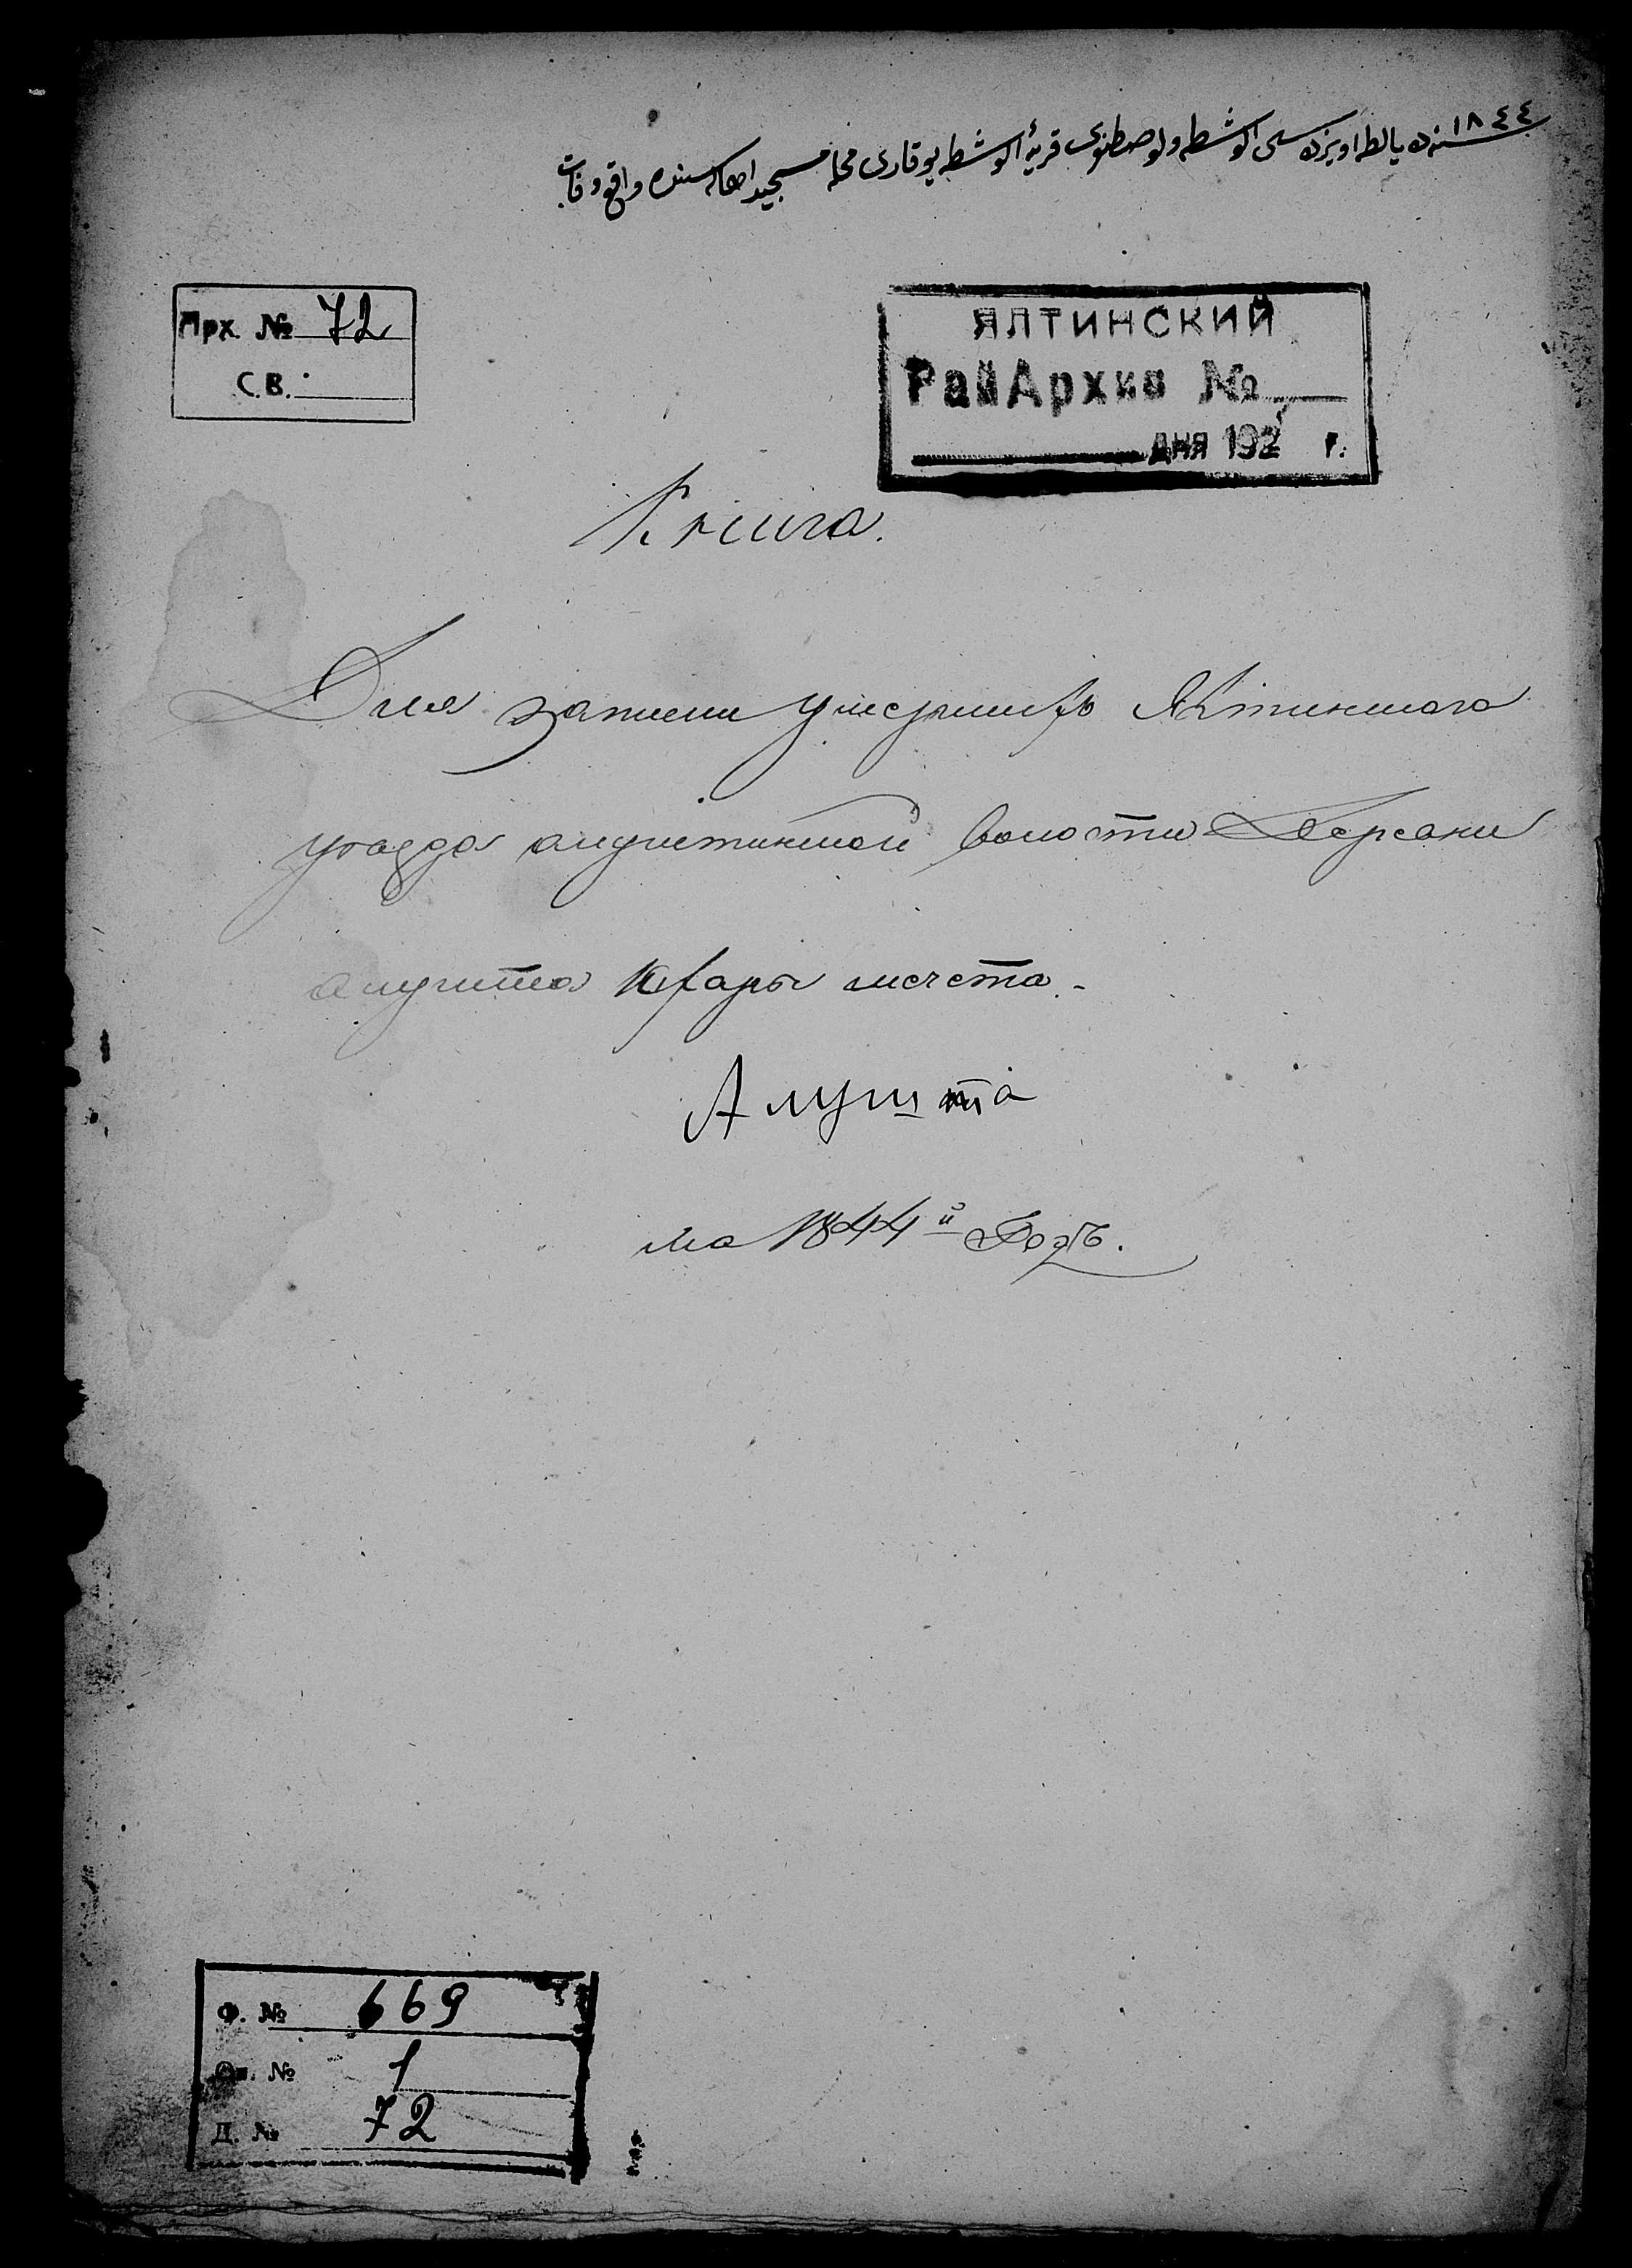 ١٨٤٤
سنه‌ده يالطه اويزده‌سى الوشطه ولوصطنوى قريهٔ الوشطه يوقارى محله مسجيد اهاكه‌سنده واقع وفات
Арх. № 72
С.В.
ЯЛТИНСКИЙ
РайАрхив №
дня 192 г.
Книга.
Для записи умершихъ Ялтинскаго
уѣзда алуштинской волости Деревни
алушта Юхары мечета.
Алушта
на 1844й Годъ.
Ф. № 669
Оп. № 1
Д. № 72